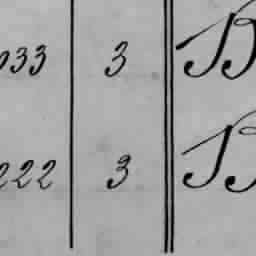 033 3 B
222 3 B